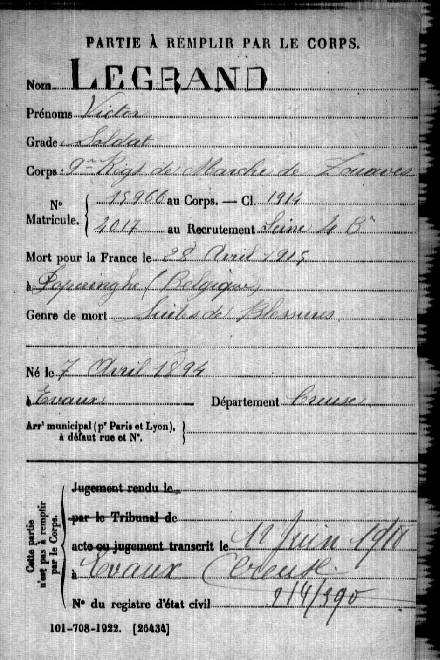 PARTIE À REMPLIR PAR LE CORPS.
Nom LEGRAND
Prénoms Victor
Grade Soldat
Corps 9me Rigt de Marche de Zouaves
N° Matricule. { 15900 au Corps. — Cl. 1914
2017 au Recrutement Seine 4 B
Mort pour la France le 28 Avril 1915
à Poperinghe (Belgique)
Genre de mort Suites de Blessures
Né le 7 Avril 1894
à Evaux Département Creuse
Arrt municipal (pr Paris et Lyon), à défaut rue et N°. }
Cette partie n'est pas à remplir par le Corps.
Jugement rendu le
par le Tribunal de
acte ou jugement transcrit le Juin
à Evaux Creuse
N° du registre d'état civil
101-708-1922. [26434]